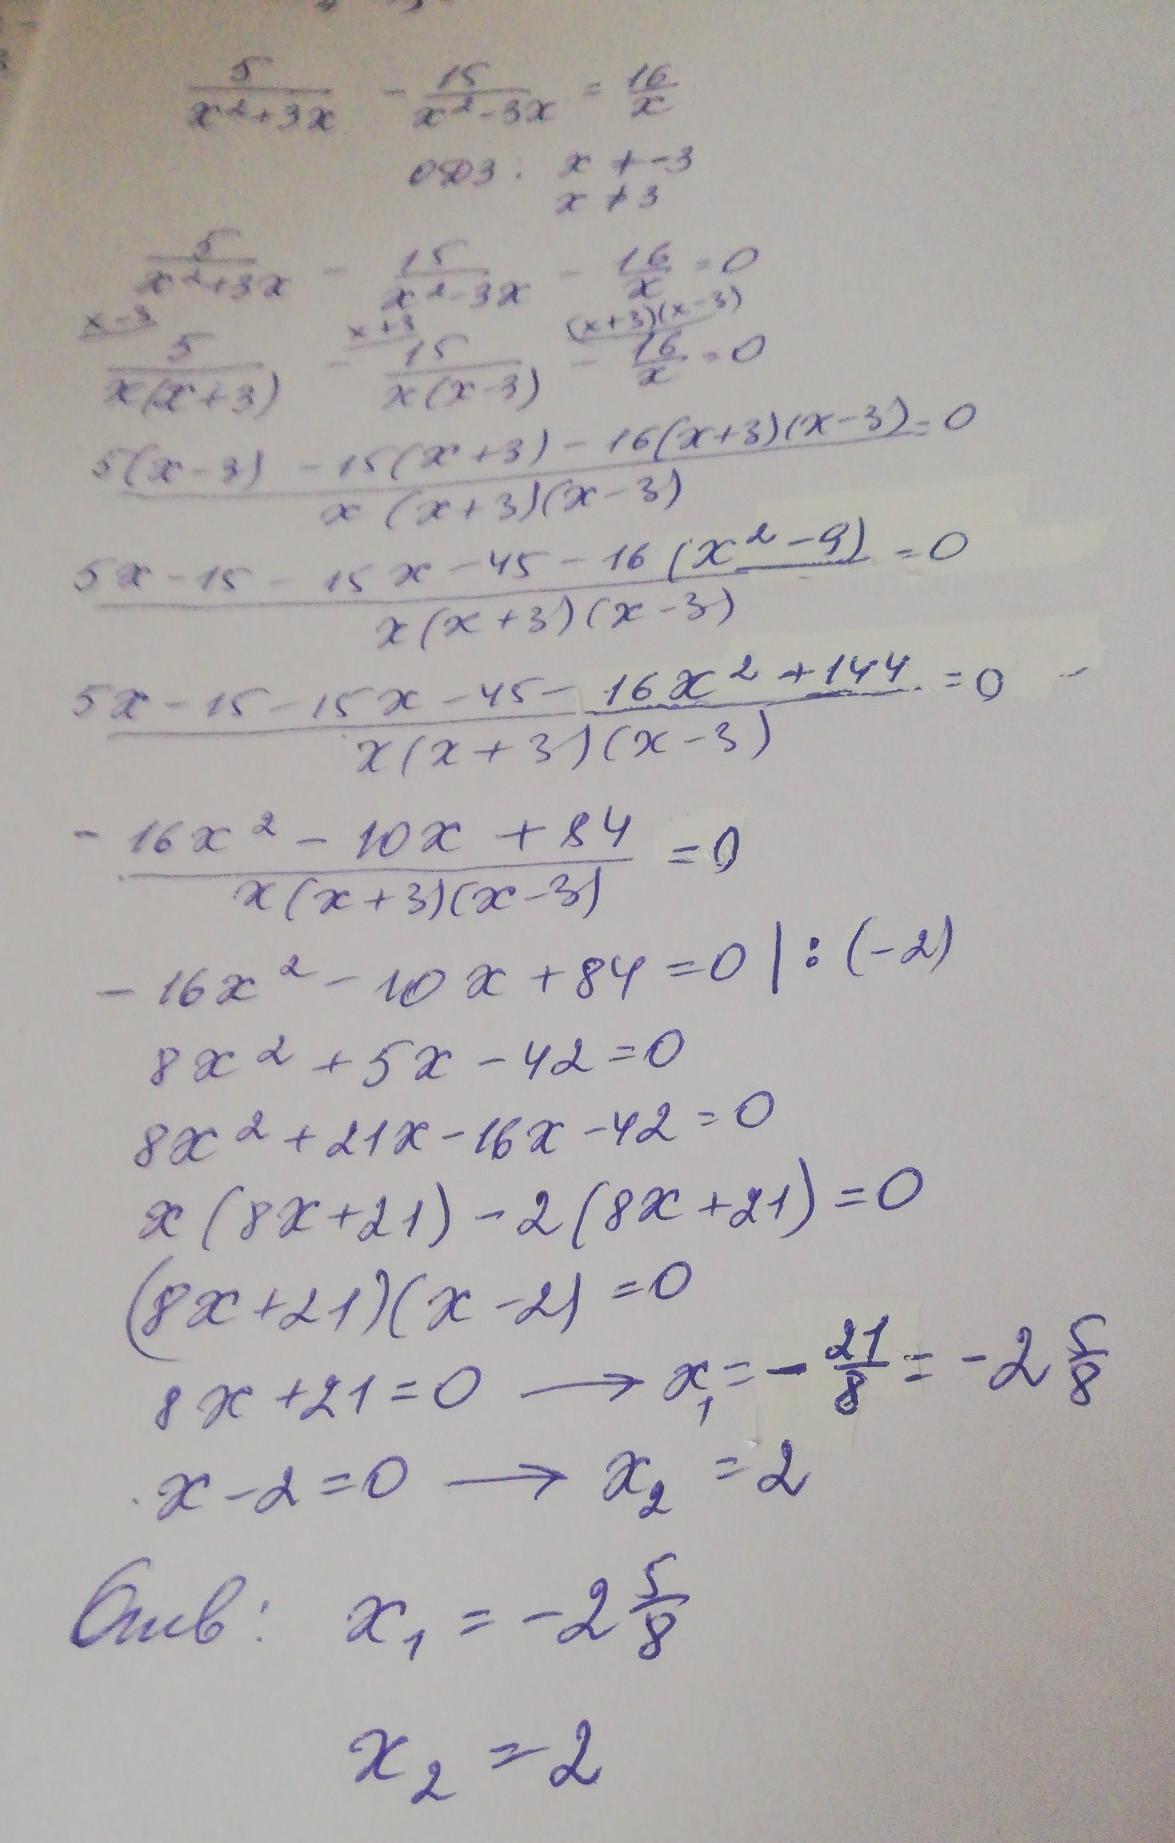 5/(x²+3x) - 15/(x²-3x) = 16/x
ОДЗ: x ≠ -3
x ≠ 3
5/(x²+3x) - 15/(x²-3x) - 16/x = 0
x-3 x+3 (x+3)(x-3)
5/(x(x+3)) - 15/(x(x-3)) - 16/x = 0
(5(x-3) - 15(x+3) - 16(x+3)(x-3))/(x(x+3)(x-3)) = 0
(5x - 15 - 15x - 45 - 16(x²-9))/(x(x+3)(x-3)) = 0
(5x - 15 - 15x - 45 - 16x² + 144)/(x(x+3)(x-3)) = 0
(-16x² - 10x + 84)/(x(x+3)(x-3)) = 0
-16x² - 10x + 84 = 0 | : (-2)
8x² + 5x - 42 = 0
8x² + 21x - 16x - 42 = 0
x(8x+21) - 2(8x+21) = 0
(8x+21)(x-2) = 0
8x + 21 = 0 → x₁ = - 21/8 = -2 5/8
x - 2 = 0 → x₂ = 2
Отв: x₁ = -2 5/8
x₂ = 2